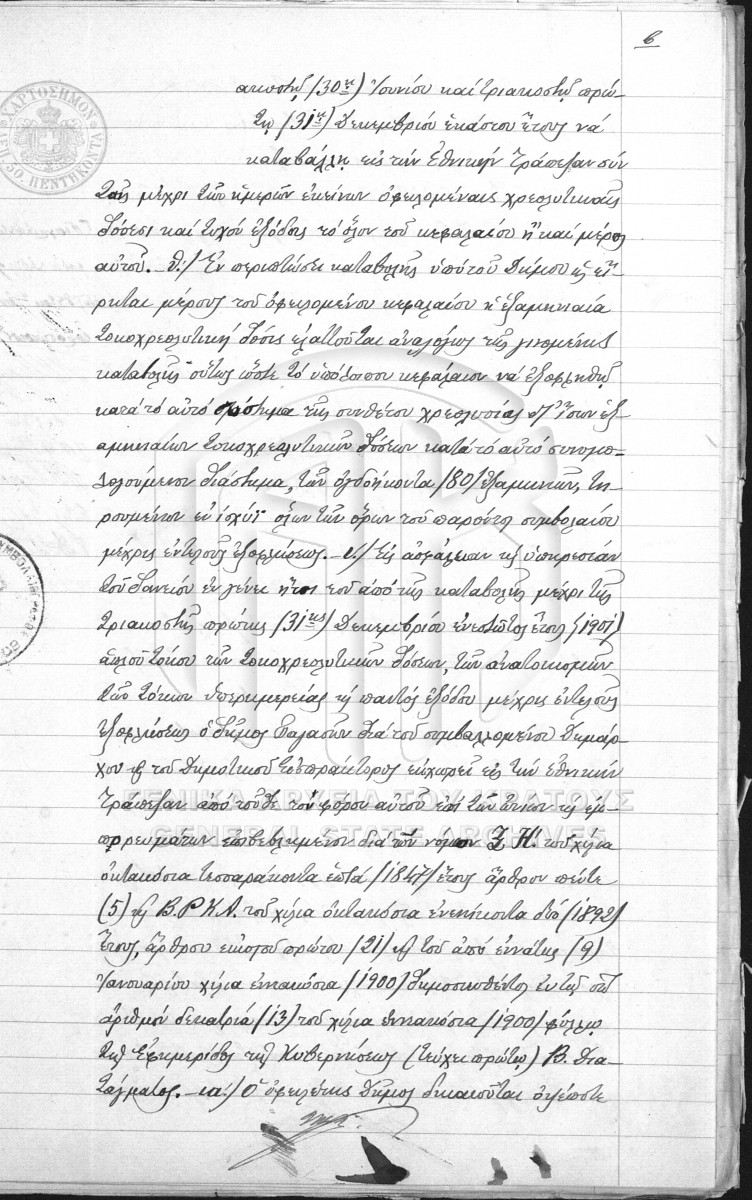 6
ακοστῇ (30ῃ) Ἰουνίου καί τριακοστῇ πρώ-
τῃ (31ῃ) Δεκεμβρίου ἑκάστου ἔτους νά
καταβάλλῃ εἰς τήν Ἐθνικήν Τράπεζαν σύν
ταῖς μέχρι τῶν ἡμερῶν ἐκείνων ὀφειλομέναις χρεολυτικαῖς
δόσεσι καί τυχόν ἐξόδοις τό ὅλον τοῦ κεφαλαίου ἤ καί μέρος
αὐτοῦ. - θ΄./ Ἐν περιπτώσει καταβολῆς ὑπό τοῦ Δήμου ὡς εἴ-
ρηται μέρους τοῦ ὀφειλομένου κεφαλαίου ἡ ἑξαμηνιαία
τοκοχρεολυτική δόσις ἐλαττοῦται ἀναλόγως τῆς γενομένης
καταβολῆς οὕτως ὥστε τό ὑπόλοιπον κεφάλαιον νά ἐξοφληθῇ
κατά τό αὐτό σύστημα τῆς συνθέτου χρεολυσίας δι' ἴσων ἑξ-
αμηνιαίων τοκοχρεολυτικῶν δόσεων κατά τό αὐτό συνομο-
λογούμενον διάστημα, τῶν ὀγδοήκοντα (80) ἑξαμηνιῶν, τη-
ρουμένων ἐν ἰσχύϊ ὅλων τῶν ὅρων τοῦ παρόντος συμβολαίου
μέχρις ἐντελοῦς ἐξοφλήσεως. - ι΄./ Εἰς ἀσφάλειαν καί ὑπηρεσίαν
τοῦ δανείου ἐν γένει ἤτοι τοῦ ἀπό τῆς καταβολῆς μέχρι τῆς
τριακοστῆς πρώτης (31ης) Δεκεμβρίου ἐνεστῶτος ἔτους (1901)
ἁπλοῦ τόκου τῶν τοκοχρεολυτικῶν δόσεων, τῶν ἀνατοκισμῶν
τῶν τόκων ὑπερημερείας καί παντός ἐξόδου μέχρις ἐντελοῦς
ἐξοφλήσεως ὁ Δῆμος διά τοῦ συμβαλλομένου Δημάρ-
χου καί τοῦ Δημοτικοῦ Εἰσπράκτορος ἐκχωρεῖ εἰς τήν Ἐθνικήν
Τράπεζαν ἀπό τοῦδε τόν φόρον αὐτοῦ ἐπί τῶν ὠνίων καί ἐμ-
πορευμάτων ἐπιβεβλημένον διά τοῦ νόμου Ξ.Η΄. τοῦ χίλια
ὀκτακόσια τεσσαράκοντα ἑπτά (1847) ἔτους ἄρθρον πέντε
(5) καί Β.Ρ.Κ.Α. τοῦ χίλια ὀκτακόσια ἐνενήκοντα δύο (1892)
ἔτους, ἄρθρου εἰκοστοῦ πρώτου (21) καί τοῦ ἀπό ἐννάτης (9)
Ἰανουαρίου χίλια ἐννακόσια (1900) δημοσιευθέντος ἐν τῷ ὑπ'
ἀριθμόν δεκατρία (13) τοῦ χίλια ἐννακόσια (1900) φύλλῳ
τῆς Ἐφημερίδος τῆς Κυβερνήσεως (τεῦχει πρώτῳ) Β. Δια-
τάγματος. - ια΄./ Ὁ ὀφειλέτης Δῆμος δικαιοῦται ὁποτε
ΧΑΡΤΟΣΗΜΟΝ
ΓΕΝΙΚΑ ΑΡΧΕΙΑ ΤΟΥ ΚΡΑΤΟΥΣ
GENERAL STATE ARCHIVES